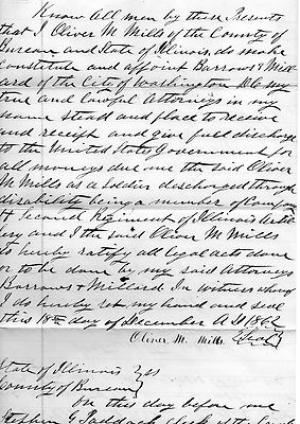 Know all men by these Presents
that I Oliver M Mills of the County of
Bureau and State of Illinois, do make
constitute and appoint Barrows & Mill
ard of the City of Washington D.C. my
true and lawful Attorneys in my
name stead and place to receive
and receipt and give full discharge
to the United States Government for
all moneys due me the said Oliver
M Mills as a soldier discharged through
disability being a member of Company
H Second Regiment of Illinois Artil
lery and I the said Oliver M Mills
do hereby ratify all legal acts done
or to be done by my said Attorneys
Barrows & Millard In witness whereof
I do hereby set my hand and seal
this 18th day of December A D 1862
Oliver M. Mills {Seal}
State of Illinois } ss
County of Bureau }
On this day before me
Stephen G Paddock clerk of the County